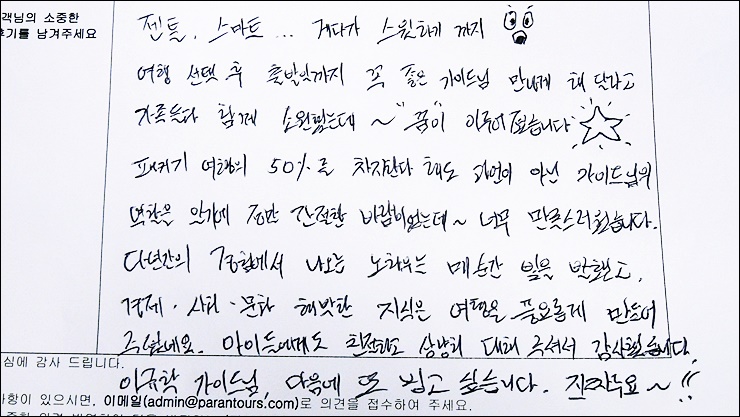 객님의 소중한
후기를 남겨주세요
젠틀, 스마트... 게다가 스윗하기까지
여행 선택 후 출발일까지 꼭 좋은 가이드님 만나게 해 달라고
가족들과 함께 소원했는데 ~ "꿈"이 이루어졌습니다
패키지 여행의 50%를 차지한다 해도 과언이 아닌 가이드님의
역할을 알기에 정말 간절한 바람이었는데~ 너무 만족스러웠습니다.
다년간의 경험에서 나오는 노하우는 매순간 빛을 발했고,
경제·사회·문화 해박한 지식은 여행을 풍요롭게 만들어
주셨네요. 아이들에게도 친절하고 상냥히 대해 주셔서 감사했습니다.
심에 감사 드립니다.
이규학 가이드님, 다음에 또 뵙고 싶습니다. 진짜루요~!!
사항이 있으시면, 이메일(admin@parantours.com)로 의견을 접수하여 주세요.